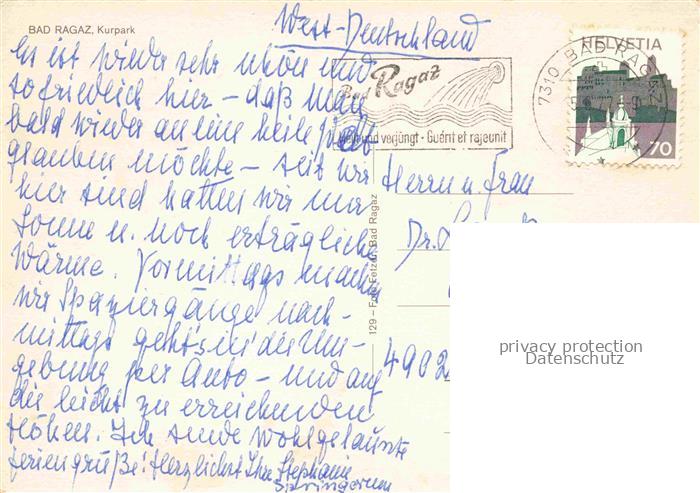 BAD RAGAZ, Kurpark
West-Deutschland
Es ist wieder sehr schön und
so friedlich hier – daß man
bald wieder an eine heile Welt
glauben möchte – seit wir
hier sind hatten wir nur
Sonne u. noch erträgliche
Wärme. Vormittags machen
wir Spaziergänge nach-
mittags geht's in die Um-
gebung per Auto – und auf
die leicht zu erreichenden
Höhen. Ich sende wohlgelaunte
Feriengrüße! Herzlichst Ihre Stephanie
Springorum
Bad Ragaz
und verjüngt · Guérit et rajeunit
7310 BAD RAGAZ
HELVETIA
70
129 – Foto Fetzer, Bad Ragaz
Herrn u. Frau
Dr.
4902
privacy protection
Datenschutz